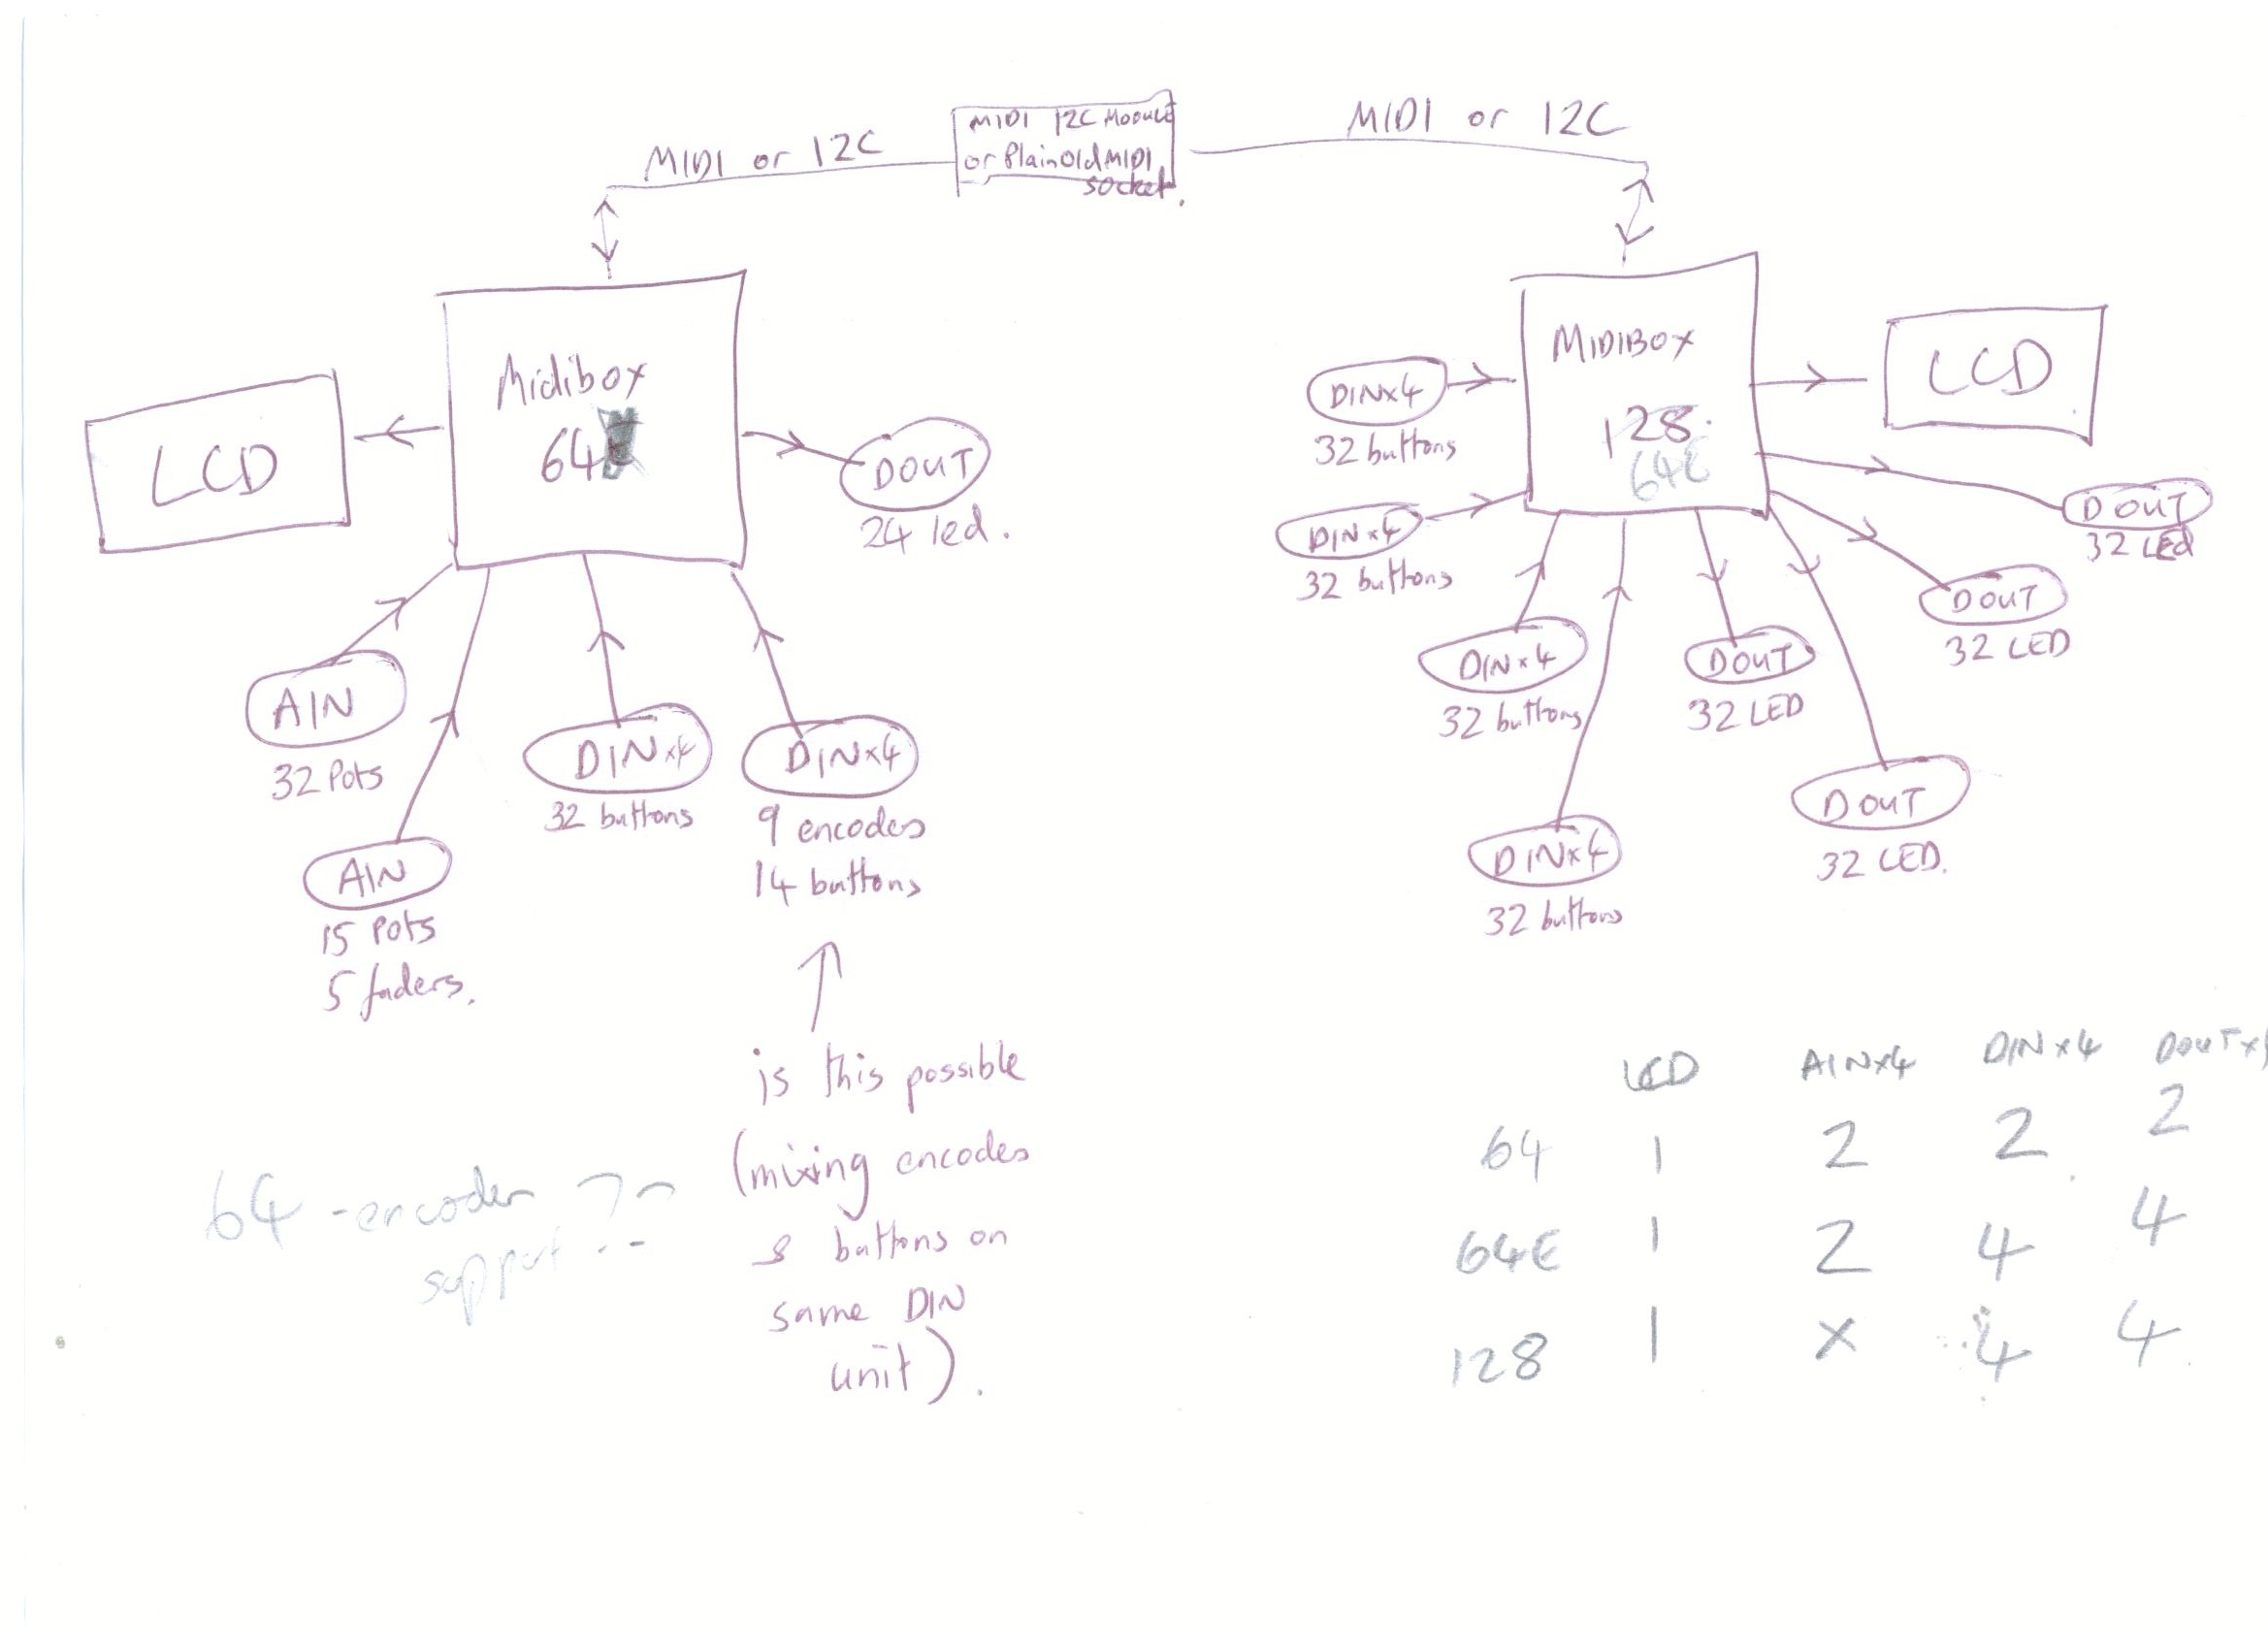 MIDI or I2C
MIDI I2C Module
or Plain Old MIDI
socket.
MIDI or I2C
Midibox
64
LCD
DOUT
24 led.
AIN
32 Pots
AIN
15 Pots
5 faders.
DINx4
32 buttons
DINx4
9 encodes
14 buttons
is this possible
(mixing encodes
& buttons on
same DIN
unit).
64 - encoder ??
support
MIDIBOX
128.
64E
LCD
DINx4
32 buttons
DINx4
32 buttons
DINx4
32 buttons
DINx4
32 buttons
DOUT
32 LED
DOUT
32 LED
DOUT
32 LED
DOUT
32 LED.
LCD AINx4 DINx4 DOUTx
64 1 2 2 2
64E 1 2 4 4
128 1 x 4 4